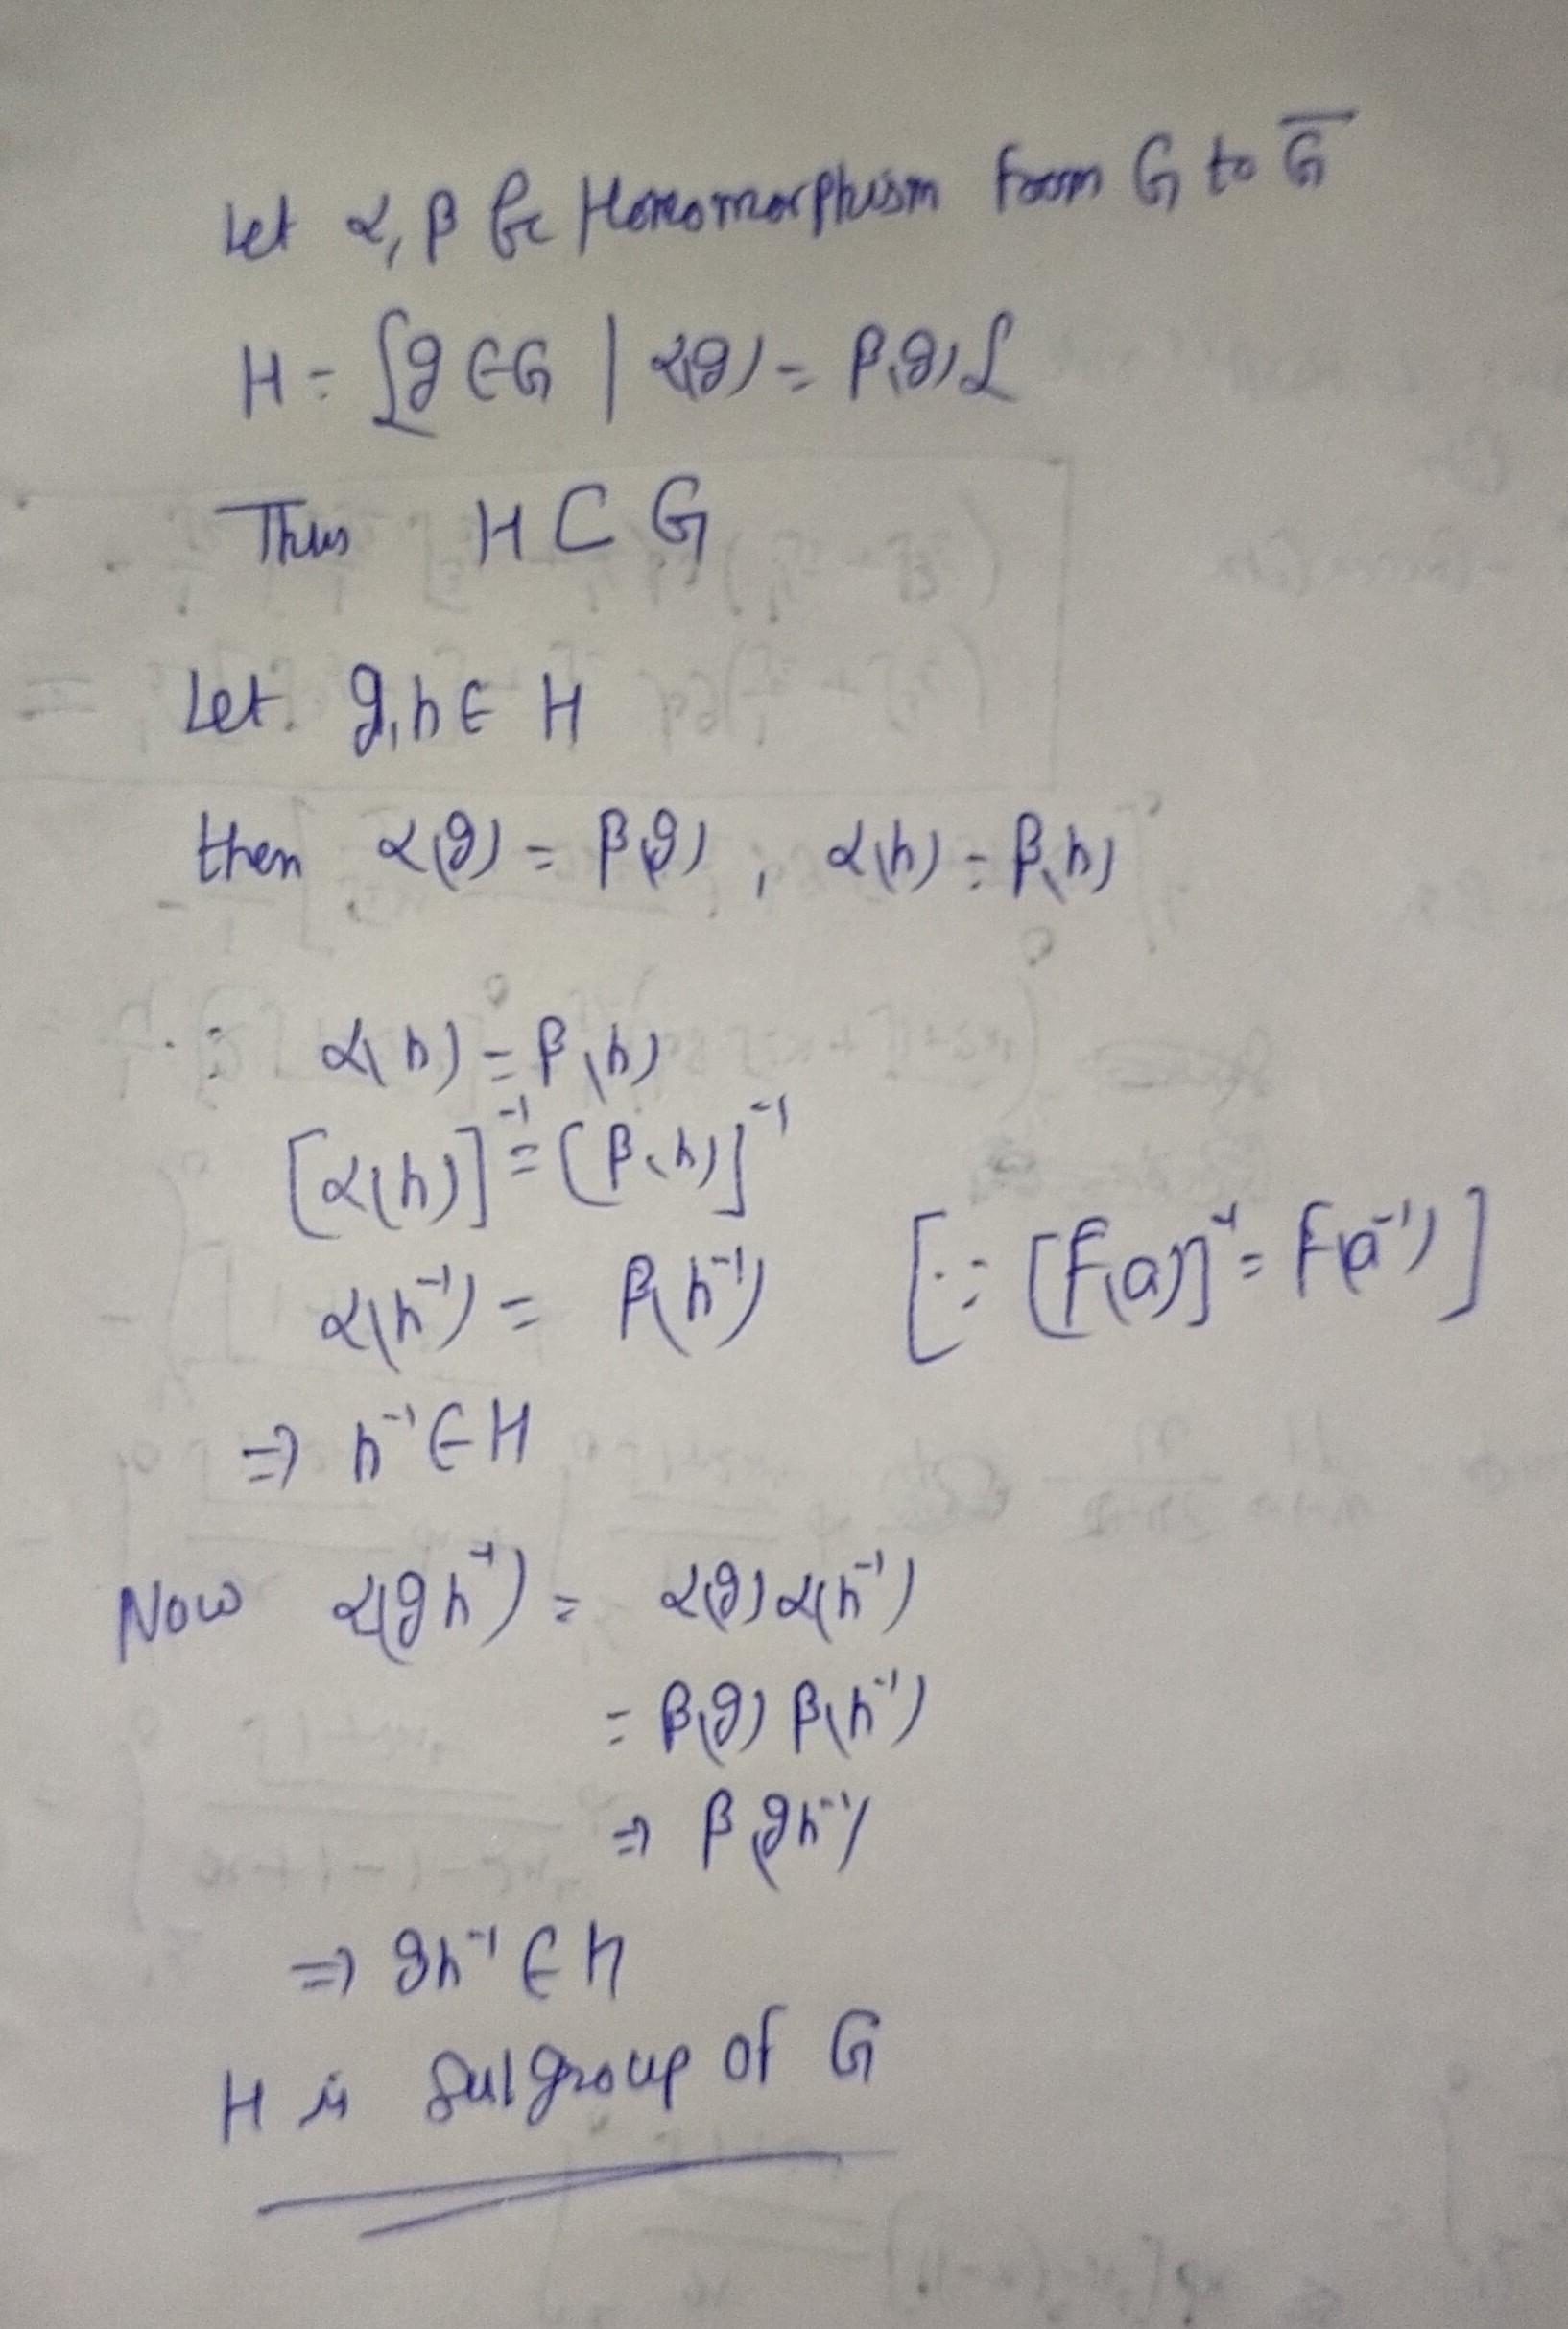 Let α, β be Homomorphism From G to G̅
H = {g ∈ G | α(g) = β(g)}
Thus H ⊂ G
Let g, h ∈ H
then α(g) = β(g) , α(h) = β(h)
∴ α(h) = β(h)
[α(h)]⁻¹ = [β(h)]⁻¹
α(h⁻¹) = β(h⁻¹) [∵ [F(a)]⁻¹ = F(a⁻¹)]
⇒ h⁻¹ ∈ H
Now α(gh⁻¹) = α(g) α(h⁻¹)
= β(g) β(h⁻¹)
⇒ β(gh⁻¹)
⇒ gh⁻¹ ∈ H
H is Subgroup of G